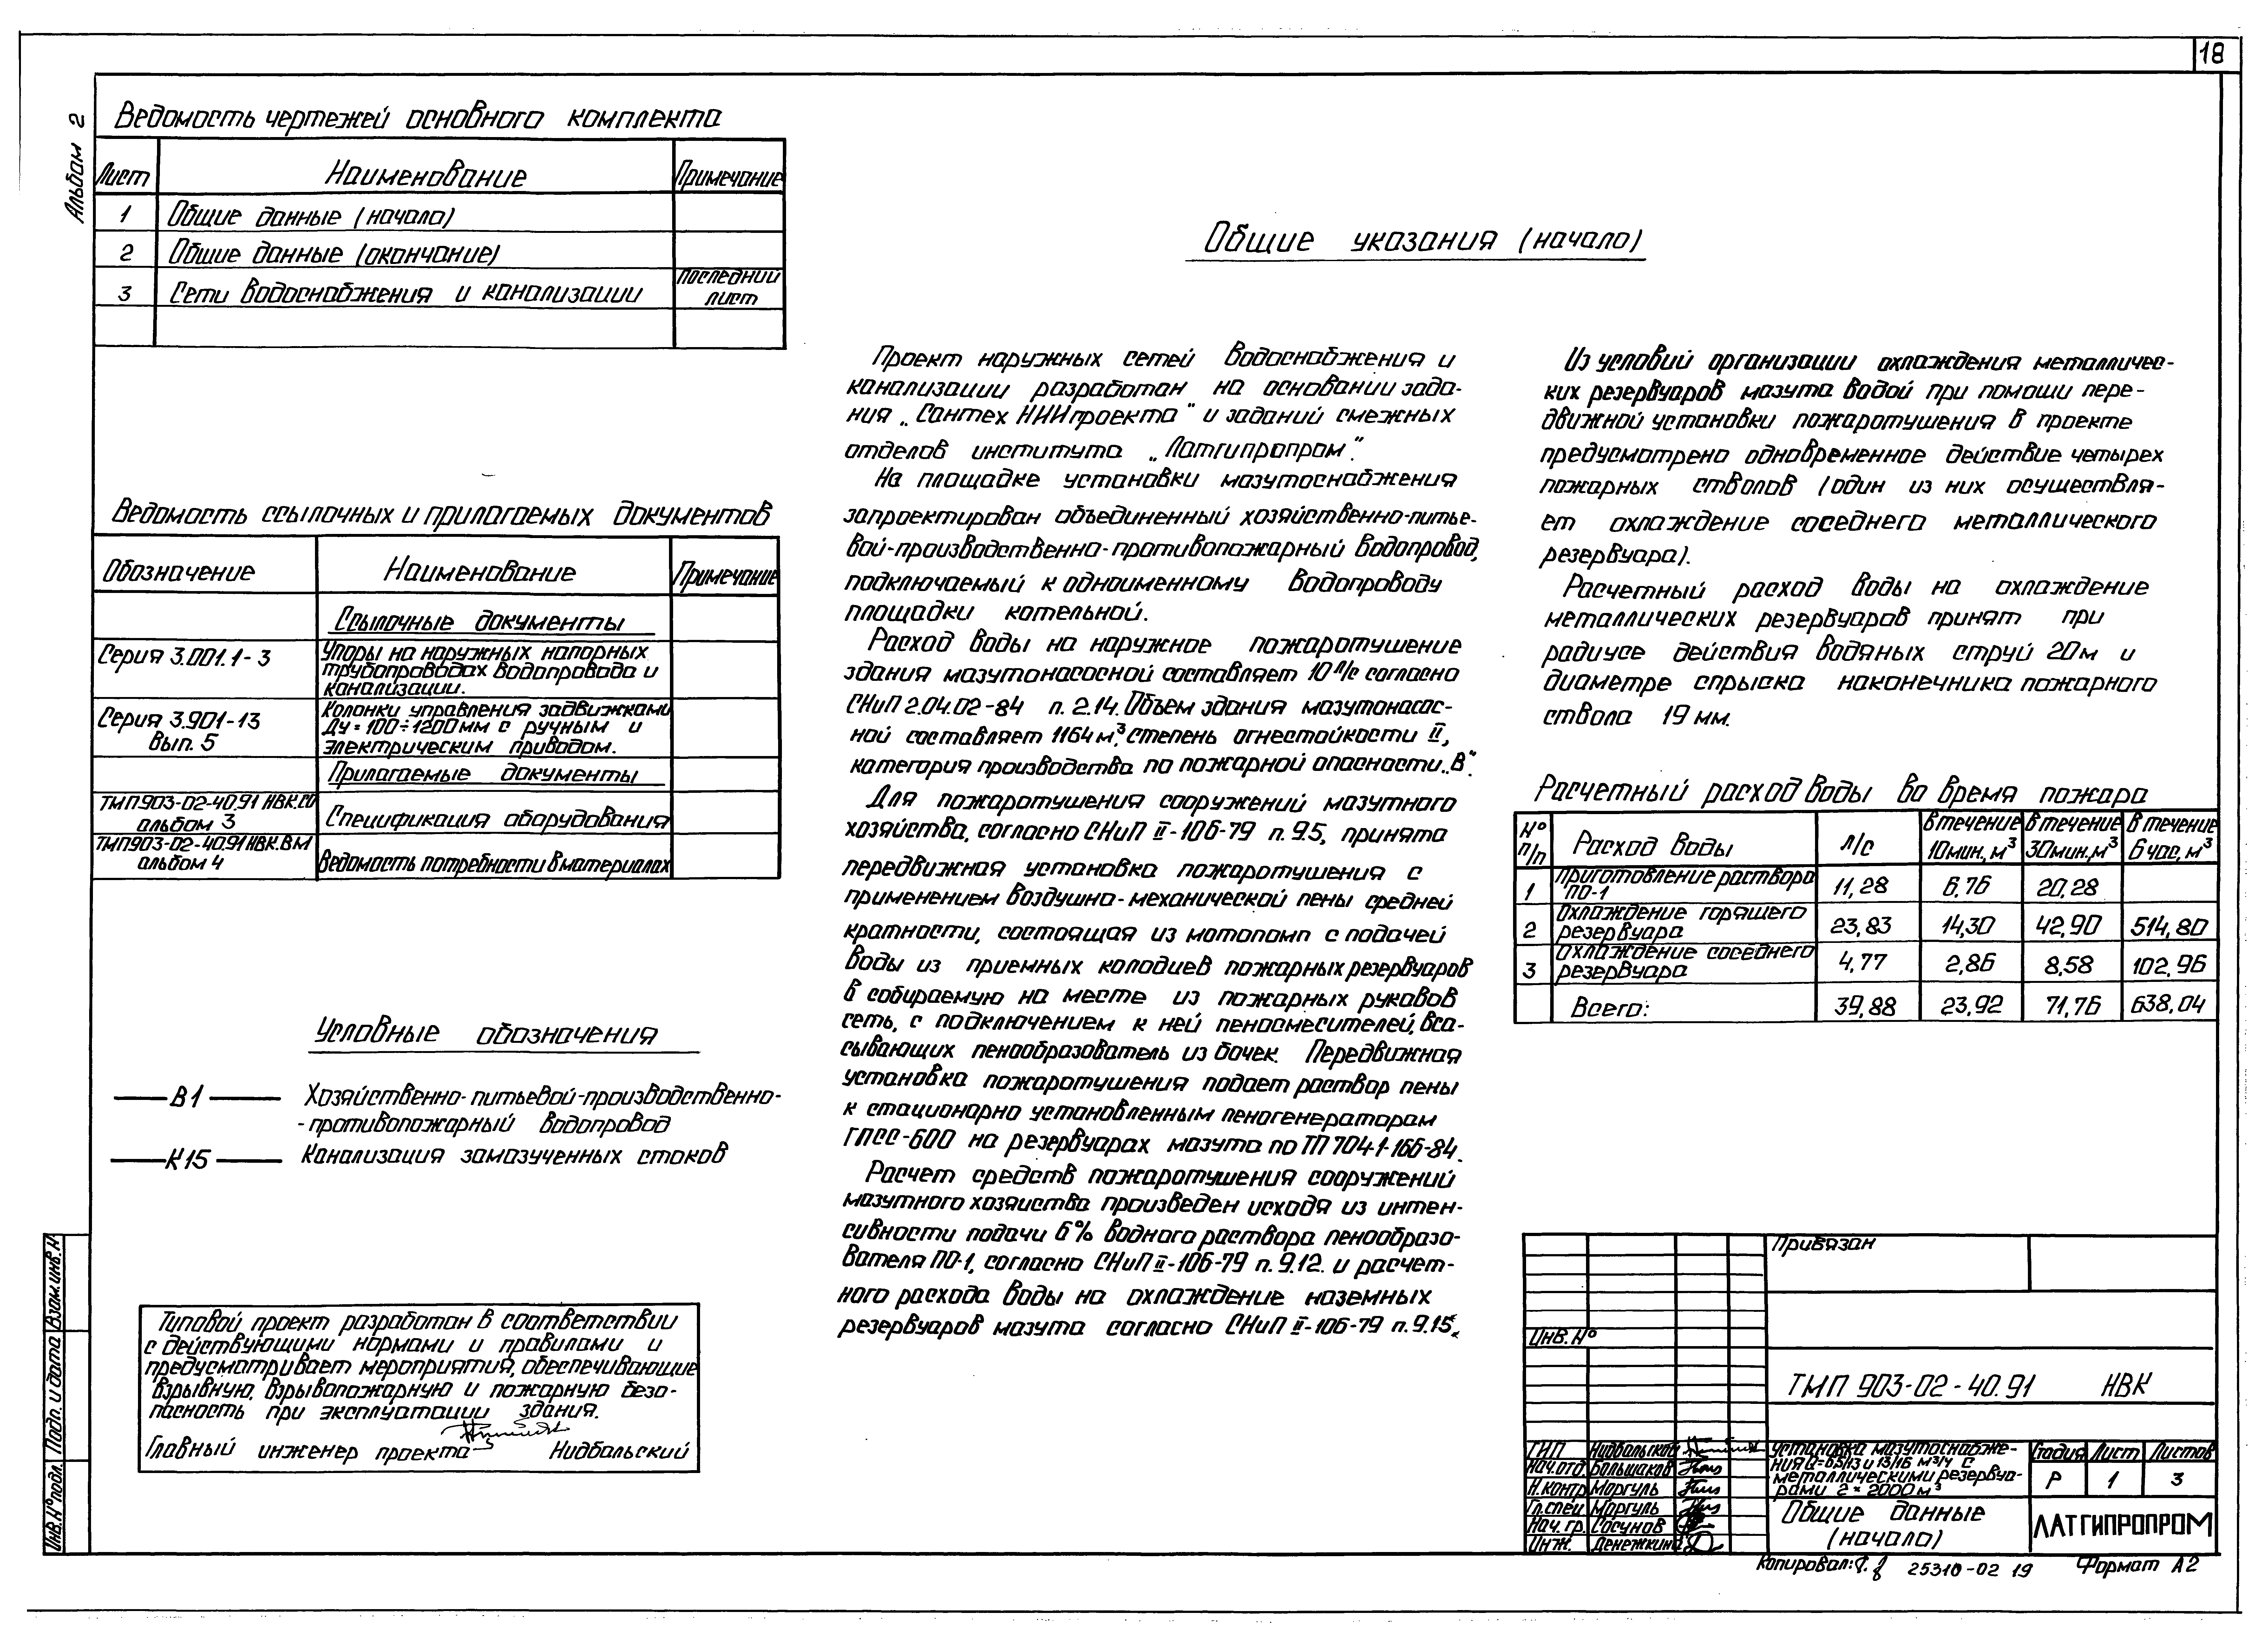 18
Альбом 2
Ведомость чертежей основного комплекта
Лист Наименование Примечание
1 Общие данные (начало)
2 Общие данные (окончание)
3 Сети водоснабжения и канализации последний лист
Ведомость ссылочных и прилагаемых документов
Обозначение Наименование Примечание
Ссылочные документы
Серия 3.001.1-3 Упоры на наружных напорных
трубопроводах водопровода и
канализации.
Серия 3.901-13 Колонки управления задвижками
Вып. 5 Ду=100÷1200мм с ручным и
электрическим приводом.
Прилагаемые документы
ТМП903-02-40.91 НВК.СО
альбом 3 Спецификация оборудования
ТМП903-02-40.91 НВК.ВМ
альбом 4 Ведомость потребности в материалах
Условные обозначения
В1 Хозяйственно-питьевой-производственно-
-противопожарный водопровод
К15 Канализация замазученных стоков
Типовой проект разработан в соответствии
с действующими нормами и правилами и
предусматривает мероприятия, обеспечивающие
взрывную, взрывопожарную и пожарную безо-
пасность при эксплуатации здания.
Главный инженер проекта Нидбальский
Общие указания (начало)
Проект наружных сетей водоснабжения и
канализации разработан на основании зада-
ния „СантехНИИпроекта" и заданий смежных
отделов института „Латгипропром".
На площадке установки мазутоснабжения
запроектирован объединенный хозяйственно-питье-
вой-производственно-противопожарный водопровод,
подключаемый к одноименному водопроводу
площадки котельной.
Расход воды на наружное пожаротушение
здания мазутонасосной составляет 10 л/с согласно
СНиП 2.04.02-84 п. 2.14. Объем здания мазутонасос-
ной составляет 1164 м³, степень огнестойкости II,
категория производства по пожарной опасности „В".
Для пожаротушения сооружений мазутного
хозяйства, согласно СНиП II-106-79 п. 9.5, принята
передвижная установка пожаротушения с
применением воздушно-механической пены средней
кратности, состоящая из мотопомп с подачей
воды из приемных колодцев пожарных резервуаров
в собираемую на месте из пожарных рукавов
сеть, с подключением к ней пеносмесителей, вса-
сывающих пенообразователь из бочек. Передвижная
установка пожаротушения подает раствор пены
к стационарно установленным пеногенераторам
ГПСС-600 на резервуарах мазута по ТП 704-1-166-84.
Расчет средств пожаротушения сооружений
мазутного хозяйства произведен исходя из интен-
сивности подачи 6% водного раствора пенообразо-
вателя ПО-1, согласно СНиП II-106-79 п. 9.12. и расчет-
ного расхода воды на охлаждение наземных
резервуаров мазута согласно СНиП II-106-79 п. 9.15.
Из условий организации охлаждения металличес-
ких резервуаров мазута водой при помощи пере-
движной установки пожаротушения в проекте
предусмотрено одновременное действие четырех
пожарных стволов (один из них осуществля-
ет охлаждение соседнего металлического
резервуара).
Расчетный расход воды на охлаждение
металлических резервуаров принят при
радиусе действия водяных струй 20м и
диаметре спрыска наконечника пожарного
ствола 19 мм.
Расчетный расход воды во время пожара
№ п/п Расход воды л/с В течение 10мин, м³ В течение 30мин, м³ В течение 6 час, м³
1 Приготовление раствора ПО-1 11,28 6.76 20,28
2 Охлаждение горящего резервуара 23,83 14,30 42,90 514,80
3 Охлаждение соседнего резервуара 4,77 2,86 8,58 102,96
Всего: 39,88 23,92 71,76 638,04
Взам.инв.Н
Подп. и дата
Инв.№ подл.
Привязан
Инв.№
ТМП 903-02-40.91 НВК
ГИП Нидбальский
Нач.отд. Большаков
Н.контр. Моргуль
Гл.спец. Моргуль
Нач. гр. Сосунов
Инж. Денежкина
установка мазутоснабже-
ния Q=6,5/13 и 13/16 м³/ч с
металлическими резервуа-
рами 2×2000м³
Стадия Лист Листов
Р 1 3
Общие данные
(начало)
ЛАТГИПРОПРОМ
Копировал: 25310-02 19 Формат А2